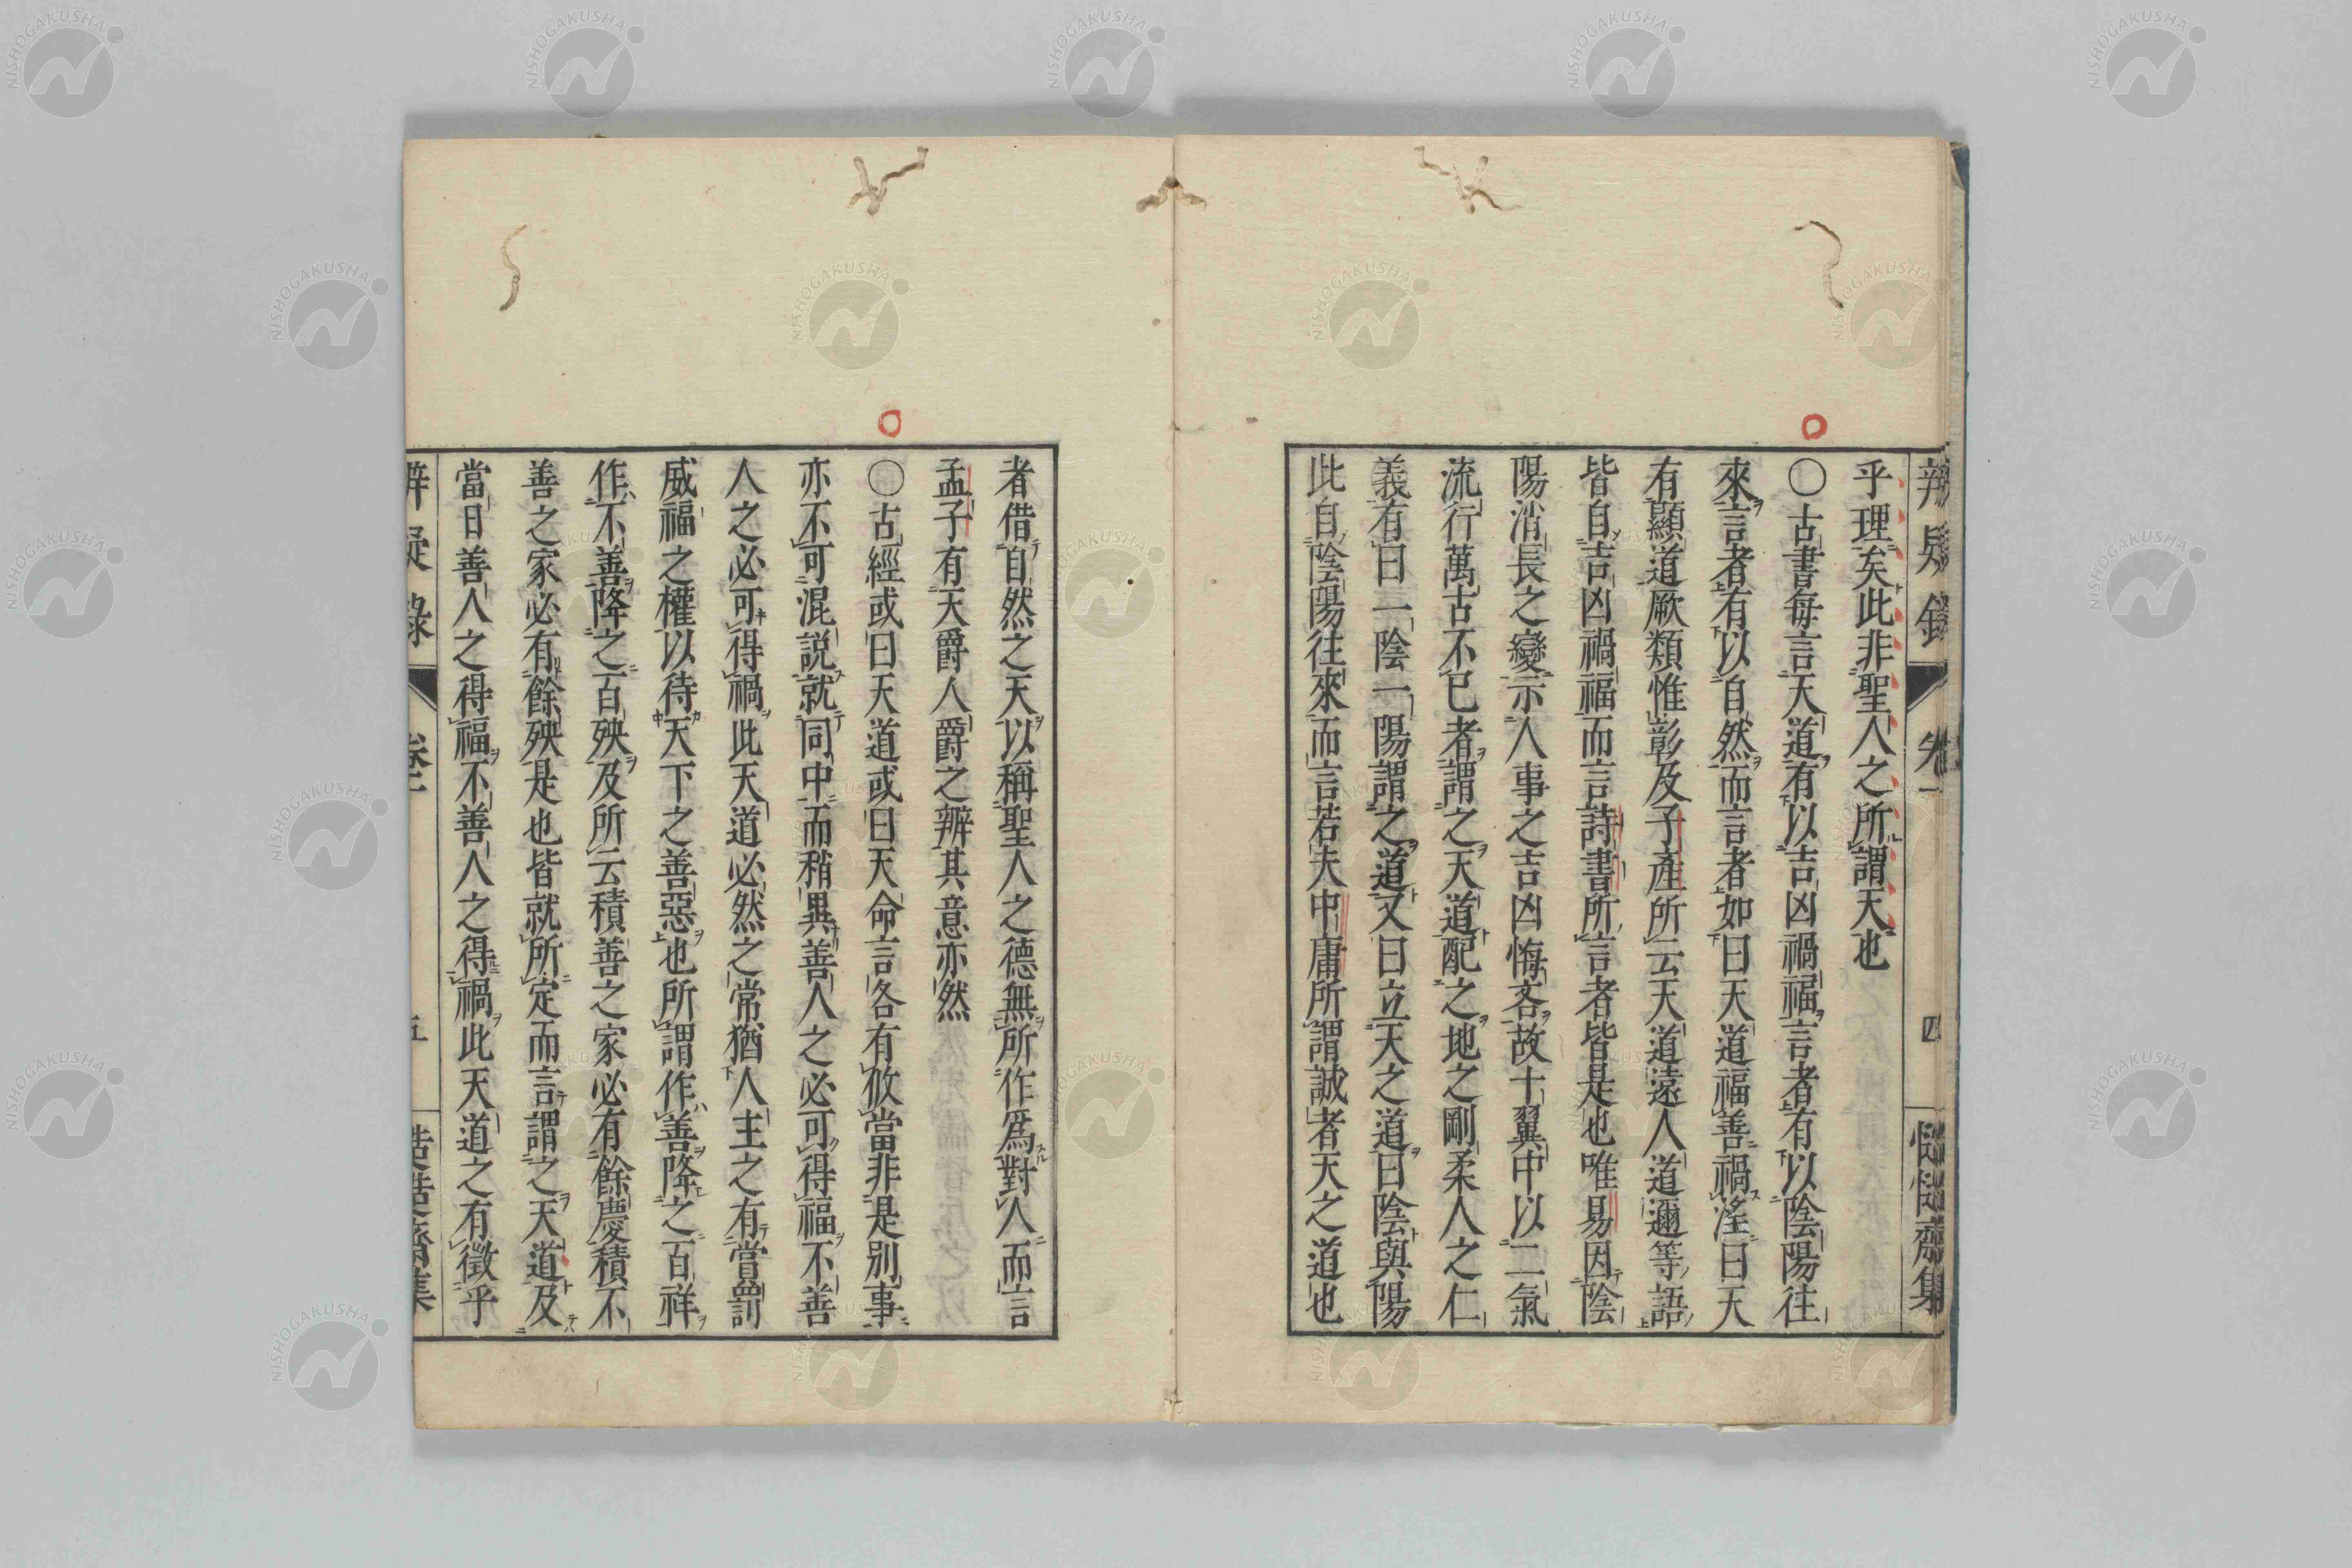 辨疑錄 卷一 四 慥慥齋集
乎理矣此非聖人之所謂天也
〇古書每言天道有以吉凶禍福言者有以陰陽往
來言者有以自然而言者如曰天道福善禍淫曰天
有顯道厥類惟彰及子產所云天道遠人道邇等語
皆自吉凶禍福而言詩書所言者皆是也唯易因陰
陽消長之變示人事之吉凶悔吝故十翼中以二氣
流行萬古不已者謂之天道配之地之剛柔人之仁
義有曰一陰一陽謂之道又曰立天之道曰陰與陽
此自陰陽往來而言若夫中庸所謂誠者天之道也
者借自然之天以稱聖人之德無所作爲對人而言
孟子有天爵人爵之辨其意亦然
〇古經或曰天道或曰天命言各有攸當非是別事
亦不可混說就同中而稍異善人之必可得福不善
人之必可得禍此天道必然之常猶人主之有賞罰
威福之權以待天下之善惡也所謂作善降之百祥
作不善降之百殃及所云積善之家必有餘慶積不
善之家必有餘殃是也皆就所定而言謂之天道及
當日善人之得福不善人之得禍此天道之有徵乎
辨疑錄 卷一 五 慥慥齋集
NISHOGAKUSHA